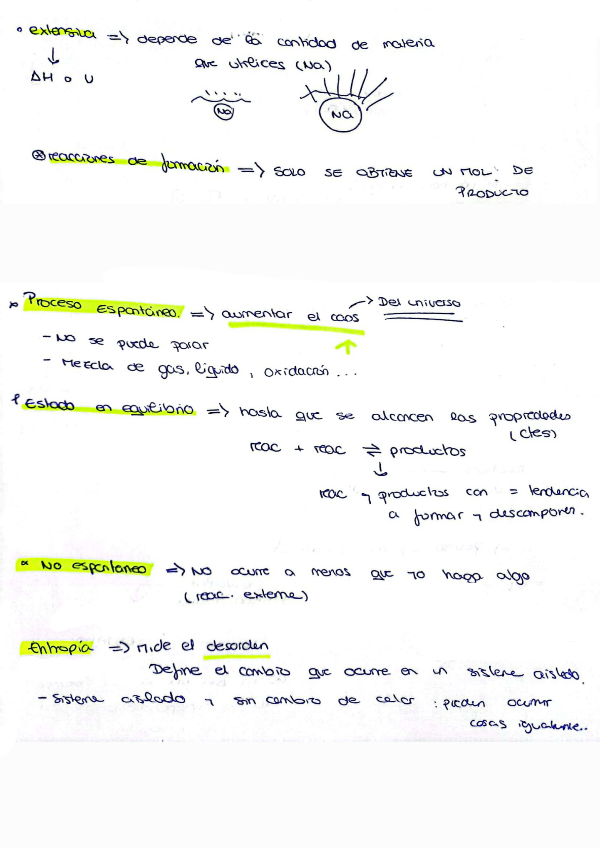 ° extensiva => depende de la cantidad de materia
que utilices (Na)
↓
ΔH o U
Na
Na
⊗ reacciones de formación => SOLO SE OBTIENE UN MOL DE
PRODUCTO
* Proceso Espontáneo. => aumentar el caos → Del universo
- No se puede parar
- Mezcla de gas, líquido, oxidación...
* Estado en equilibrio => hasta que se alcancen las propiedades
(ctes)
reac + reac ⇌ productos
↓
reac y productos con = tendencia
a formar y descomponer.
* No espontaneo => No ocurre a menos que yo haga algo
(reac. externe)
Entropía => Mide el desorden
Define el cambio que ocurre en un sistema aislado.
- Sistema aislado y sin cambio de calor : pueden ocurrir
cosas igualmente..